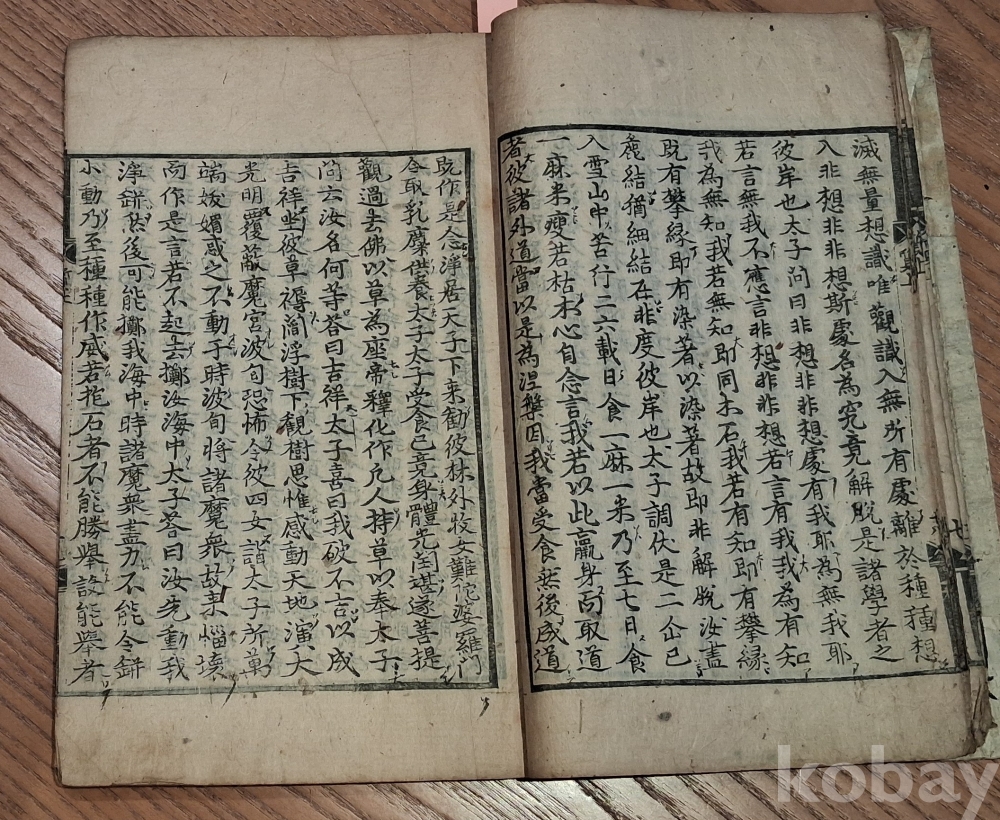 滅無量想識唯觀識入無所有處離於種種想
入非想非非想斯處名為究竟解脫是諸學者之
彼岸也太子問曰非想非非想處有我耶為無我耶
若言無我不應言非想非非想若言有我我為有知
我為無知我若無知即同木石我若有知即有攀緣
既有攀緣即有染著以染著故即非解脫汝盡
麁結猶細結存非度彼岸也太子調伏是二仙已
入雪山中苦行二六載日食一麻一米乃至七日食
一麻米瘦若枯木心自念言我若以此羸身而取道
者彼諸外道當以是為涅槃因我當受食然後成道
既作是念淨居天子下來勸彼林外牧女難陀婆羅門
令取乳麋供養太子太子受食已竟身體光閏湛遂菩提
觀過去佛以草為座帝釋化作凡人持草以奉太子
問云汝名何等答曰吉祥太子喜曰我破不吉以成
吉祥坐彼草褥閻浮樹下觀樹思惟感動天地演大
光明覆蔽魔宮波旬恐怖令彼四女詣太子所萬
端妭媚惑之不動于時波旬將諸魔衆故來惱壞
而作是言若不起去擲汝海中太子答曰汝先動我
淨缾然後可能擲我海中時諸魔衆盡力不能令缾
小動乃至種種作威若抱石者不能勝舉設能舉者
kobay